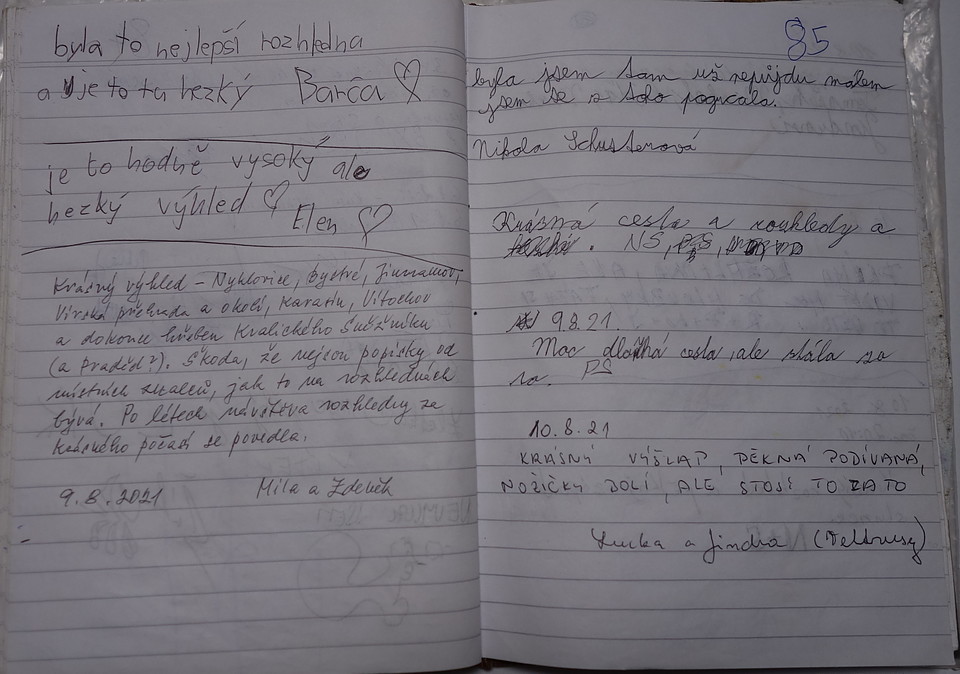 byla to nejlepší rozhledna
a je to tu hezký Barča
je to hodně vysoký ale
hezký výhled
Elen
Krásný výhled – Nyklovice, Bystré, Jimramov,
Vírská přehrada a okolí, Karasín, Vítochov
a dokonce hřeben Kralického Sněžníku
(a Praděd?). Škoda, že nejsou popisky od
místních znalců, jak to na rozhlednách
bývá. Po létech návštěva rozhledny za
krásného počasí se povedla.
9.8.2021 Míla a Zdeněk
85
byla jsem tam už nepůjdu málem
jsem se z toho pogrcala.
Nikola Schusterová
Krásná cesta a rozhledy a
. NS,
9.8.21.
Moc dlouhá cesta, ale stála za
to. PS
10.8.21
KRÁSNÝ VÝŠLAP, PĚKNÁ PODÍVANÁ,
NOŽIČKY BOLÍ, ALE STOJÍ TO ZA TO
Lucka a Jindra